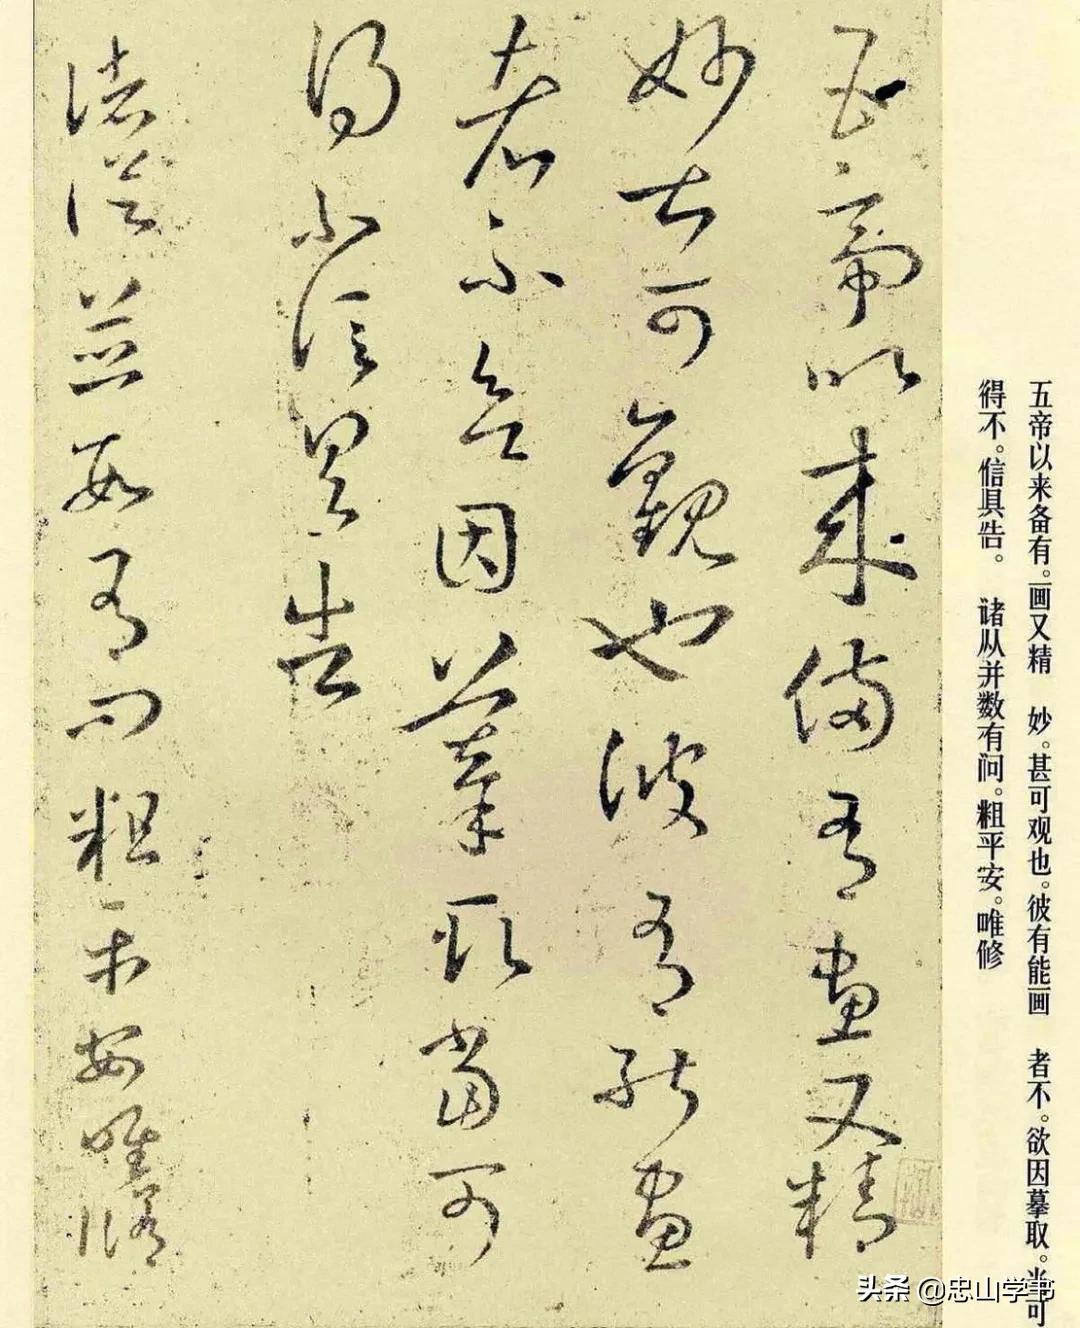 五帝以来备有。画又精 妙。甚可观也。彼有能画 者不。欲因摹取。当可
得不。信具告。 诸从并数有问。粗平安。唯修
五帝以来備有畫又精
妙甚可觀也彼有能畫
者不欲因摹取當可
得不信具告
諸從並數有問粗平安唯脩
头条 @忠山学书